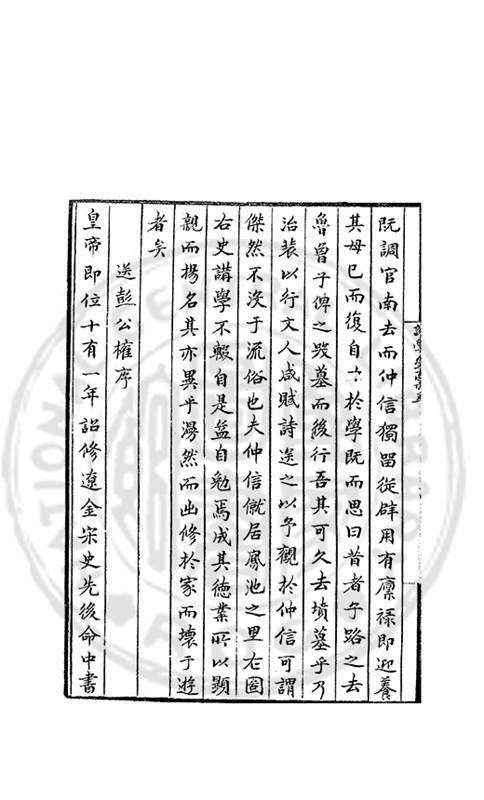 既調官南去而仲信獨留從辟用有廩祿即迎養
其母已而復自力於學既而思曰昔者子路之去
魯曾子俾之哭墓而後行吾其可久去墳墓乎乃
治裝以行文人咸賦詩送之以予觀於仲信可謂
傑然不沒于流俗也夫仲信僦居鳳池之里左圖
右史講學不輟自是益自勉焉成其德業所以顯
親而揚名其亦異乎漫然而出修於家而壞于遊
者矣
送彭公權序
皇帝即位十有一年詔修遼金宋史先後命中書